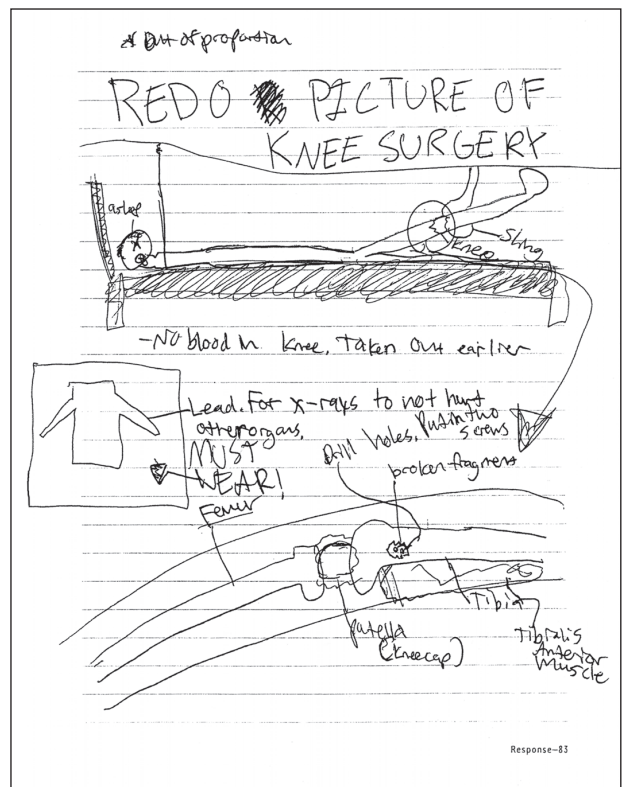 * Out of proportion
REDO PICTURE OF
KNEE SURGERY
Sling
Knee
-No blood in knee, taken out earlier
Lead. For x-rays to not hurt
other organs,
MUST
WEAR!
Drill holes, Put in two
screws
broken fragment
Femur
Tibia
patella
(kneecap)
Tibialis
Anterior
Muscle
Response—83